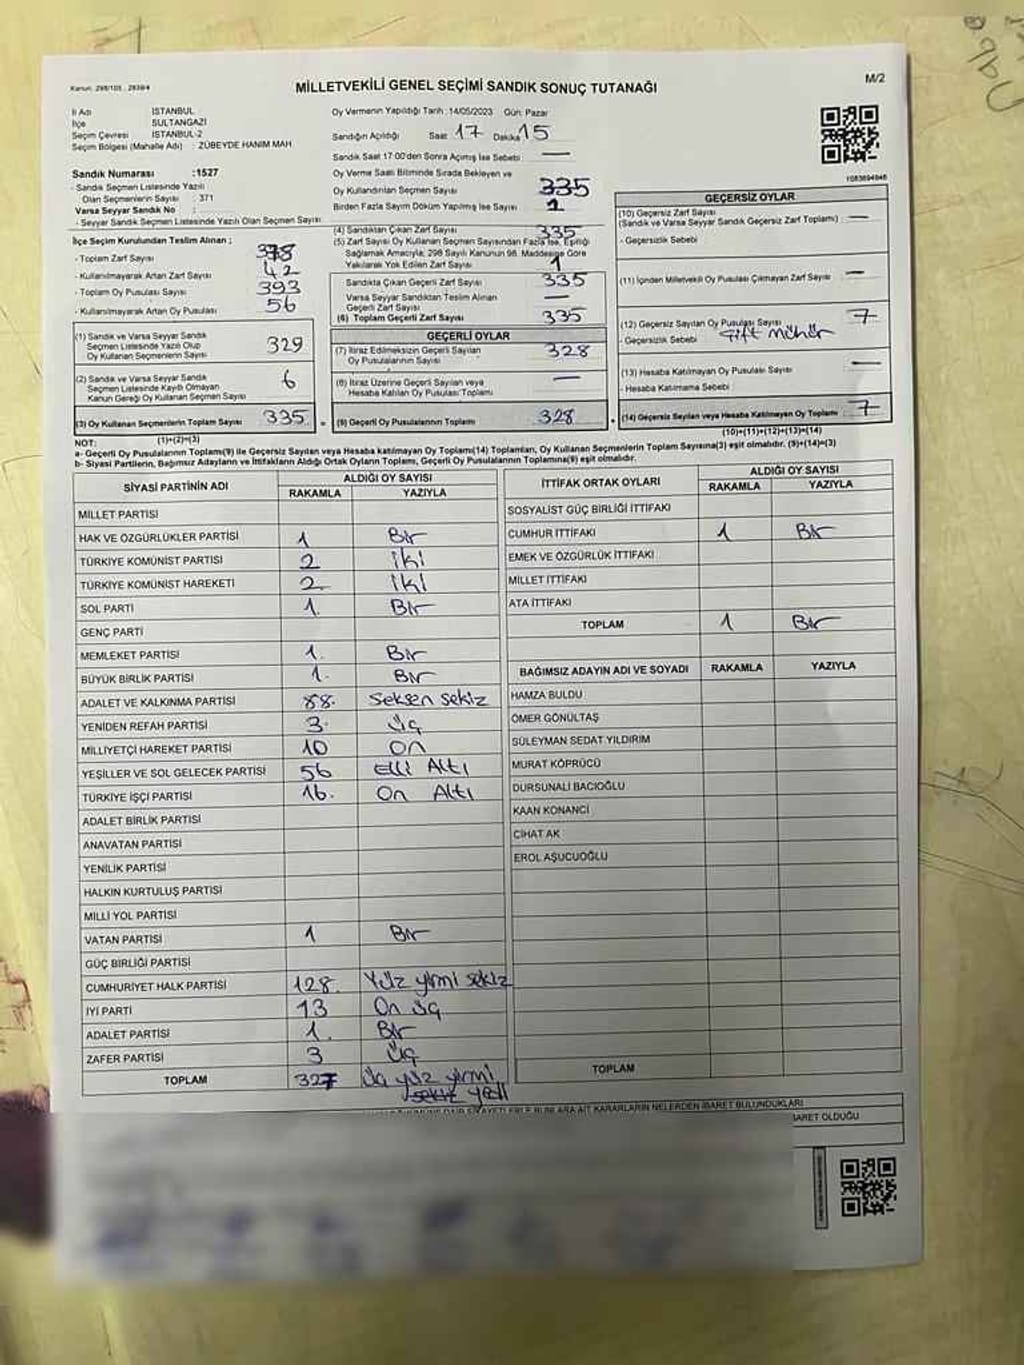 Kanun: 298/105, 2839/4
MİLLETVEKİLİ GENEL SEÇİMİ SANDIK SONUÇ TUTANAĞI
M/2
İl Adı İSTANBUL
İlçe SULTANGAZİ
Seçim Çevresi İSTANBUL-2
Seçim Bölgesi (Mahalle Adı) : ZÜBEYDE HANIM MAH
Sandık Numarası :1527
- Sandık Seçmen Listesinde Yazılı
Olan Seçmenlerin Sayısı : 371
Varsa Seyyar Sandık No :
- Seyyar Sandık Seçmen Listesinde Yazılı Olan Seçmen Sayısı
Oy Vermenin Yapıldığı Tarih :14/05/2023 Gün: Pazar
Sandığın Açıldığı Saat 17 Dakika 15
Sandık Saat 17:00'den Sonra Açılmış İse Sebebi —
Oy Verme Saati Bitiminde Sırada Bekleyen ve
Oy Kullandırılan Seçmen Sayısı 335
Birden Fazla Sayım Döküm Yapılmış İse Sayısı 1
İlçe Seçim Kurulundan Teslim Alınan ;
- Toplam Zarf Sayısı 378
- Kullanılmayarak Artan Zarf Sayısı 42
- Toplam Oy Pusulası Sayısı 393
- Kullanılmayarak Artan Oy Pusulası 56
(1) Sandık ve Varsa Seyyar Sandık
Seçmen Listesinde Yazılı Olup
Oy Kullanan Seçmenlerin Sayısı 329
(2) Sandık ve Varsa Seyyar Sandık
Seçmen Listesinde Kayıtlı Olmayan
Kanun Gereği Oy Kullanan Seçmen Sayısı 6
(3) Oy Kullanan Seçmenlerin Toplam Sayısı 335
(1)+(2)=(3)
(4) Sandıktan Çıkan Zarf Sayısı 335
(5) Zarf Sayısı Oy Kullanan Seçmen Sayısından Fazla İse, Eşitliği
Sağlamak Amacıyla; 298 Sayılı Kanunun 98. Maddesine Göre
Yakılarak Yok Edilen Zarf Sayısı 1
Sandıkta Çıkan Geçerli Zarf Sayısı 335
Varsa Seyyar Sandıktan Teslim Alınan
Geçerli Zarf Sayısı —
(6) Toplam Geçerli Zarf Sayısı 335
GEÇERLİ OYLAR
(7) İtiraz Edilmeksizin Geçerli Sayılan
Oy Pusulalarının Sayısı 328
(8) İtiraz Üzerine Geçerli Sayılan veya
Hesaba Katılan Oy Pusulası Toplamı —
(9) Geçerli Oy Pusulalarının Toplamı 328
1083694946
GEÇERSİZ OYLAR
(10) Geçersiz Zarf Sayısı
(Sandık ve Varsa Seyyar Sandık Geçersiz Zarf Toplamı) —
- Geçersizlik Sebebi
(11) İçinden Milletvekili Oy Pusulası Çıkmayan Zarf Sayısı —
(12) Geçersiz Sayılan Oy Pusulası Sayısı 7
- Geçersizlik Sebebi Çift mühür
(13) Hesaba Katılmayan Oy Pusulası Sayısı —
- Hesaba Katılmama Sebebi
(14) Geçersiz Sayılan veya Hesaba Katılmayan Oy Toplamı 7
(10)+(11)+(12)+(13)=(14)
NOT:
a- Geçerli Oy Pusulalarının Toplamı(9) ile Geçersiz Sayılan veya Hesaba katılmayan Oy Toplamı(14) Toplamları, Oy Kullanan Seçmenlerin Toplam Sayısına(3) eşit olmalıdır. (9)+(14)=(3)
b- Siyasi Partilerin, Bağımsız Adayların ve İttifakların Aldığı Ortak Oyların Toplamı, Geçerli Oy Pusulalarının Toplamına(9) eşit olmalıdır.
SİYASİ PARTİNİN ADI ALDIĞI OY SAYISI
RAKAMLA YAZIYLA
MİLLET PARTİSİ
HAK VE ÖZGÜRLÜKLER PARTİSİ 1 Bir
TÜRKİYE KOMÜNİST PARTİSİ 2 iki
TÜRKİYE KOMÜNİST HAREKETİ 2 iki
SOL PARTİ 1. Bir
GENÇ PARTİ
MEMLEKET PARTİSİ 1. Bir
BÜYÜK BİRLİK PARTİSİ 1. Bir
ADALET VE KALKINMA PARTİSİ 88. Seksen sekiz
YENİDEN REFAH PARTİSİ 3. Üç
MİLLİYETÇİ HAREKET PARTİSİ 10 On
YEŞİLLER VE SOL GELECEK PARTİSİ 56 Elli Altı
TÜRKİYE İŞÇİ PARTİSİ 16. On Altı
ADALET BİRLİK PARTİSİ
ANAVATAN PARTİSİ
YENİLİK PARTİSİ
HALKIN KURTULUŞ PARTİSİ
MİLLİ YOL PARTİSİ
VATAN PARTİSİ 1 Bir
GÜÇ BİRLİĞİ PARTİSİ
CUMHURİYET HALK PARTİSİ 128. Yüz yirmi sekiz
İYİ PARTİ 13 On üç
ADALET PARTİSİ 1. Bir
ZAFER PARTİSİ 3 Üç
TOPLAM 327 Üç yüz yirmi
sekiz yedi
İTTİFAK ORTAK OYLARI ALDIĞI OY SAYISI
RAKAMLA YAZIYLA
SOSYALİST GÜÇ BİRLİĞİ İTTİFAKI
CUMHUR İTTİFAKI 1 Bir
EMEK VE ÖZGÜRLÜK İTTİFAKI
MİLLET İTTİFAKI
ATA İTTİFAKI
TOPLAM 1 Bir
BAĞIMSIZ ADAYIN ADI VE SOYADI RAKAMLA YAZIYLA
HAMZA BULDU
ÖMER GÖNÜLTAŞ
SÜLEYMAN SEDAT YILDIRIM
MURAT KÖPRÜCÜ
DURSUNALİ BACIOĞLU
KAAN KONANCİ
CİHAT AK
EROL AŞUCUOĞLU
TOPLAM
KARARLARIN NELERDEN İBARET BULUNDUKLARI
OLDUĞU